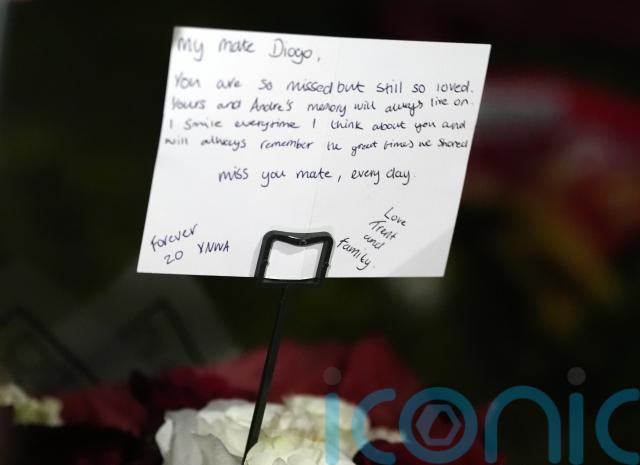 My mate Diogo,
You are so missed but still so loved.
Yours and Andre's memory will always live on.
I smile everytime I think about you and
will always remember the great times we shared
miss you mate, every day.
Forever
20 YNWA
Love
Trent
and
family.
iconic